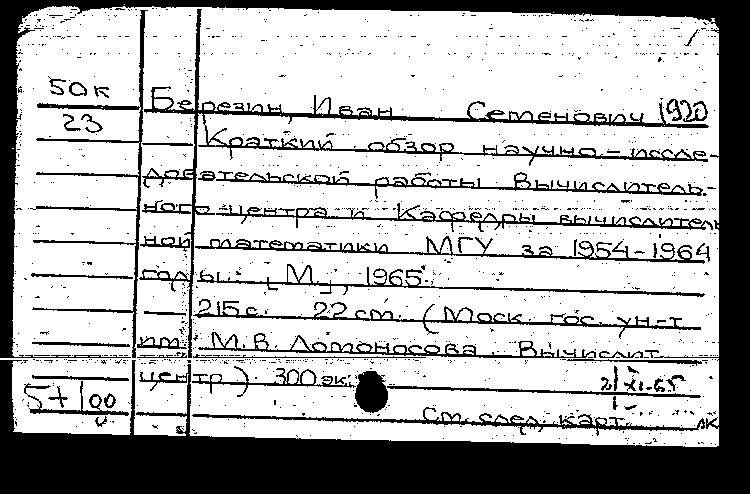 50к
23
Березин, Иван Семенович 1920
Краткий обзор научно-иссле-
довательской работы Вычислитель-
ного центра и Кафедры вычислитель
ной математики МГУ за 1954-1964
годы. [М.], 1965.
215 с. 22 см. (Моск. гос. ун-т
им. М.В. Ломоносова. Вычислит.
центр) 300 эк.
См. след. карт.